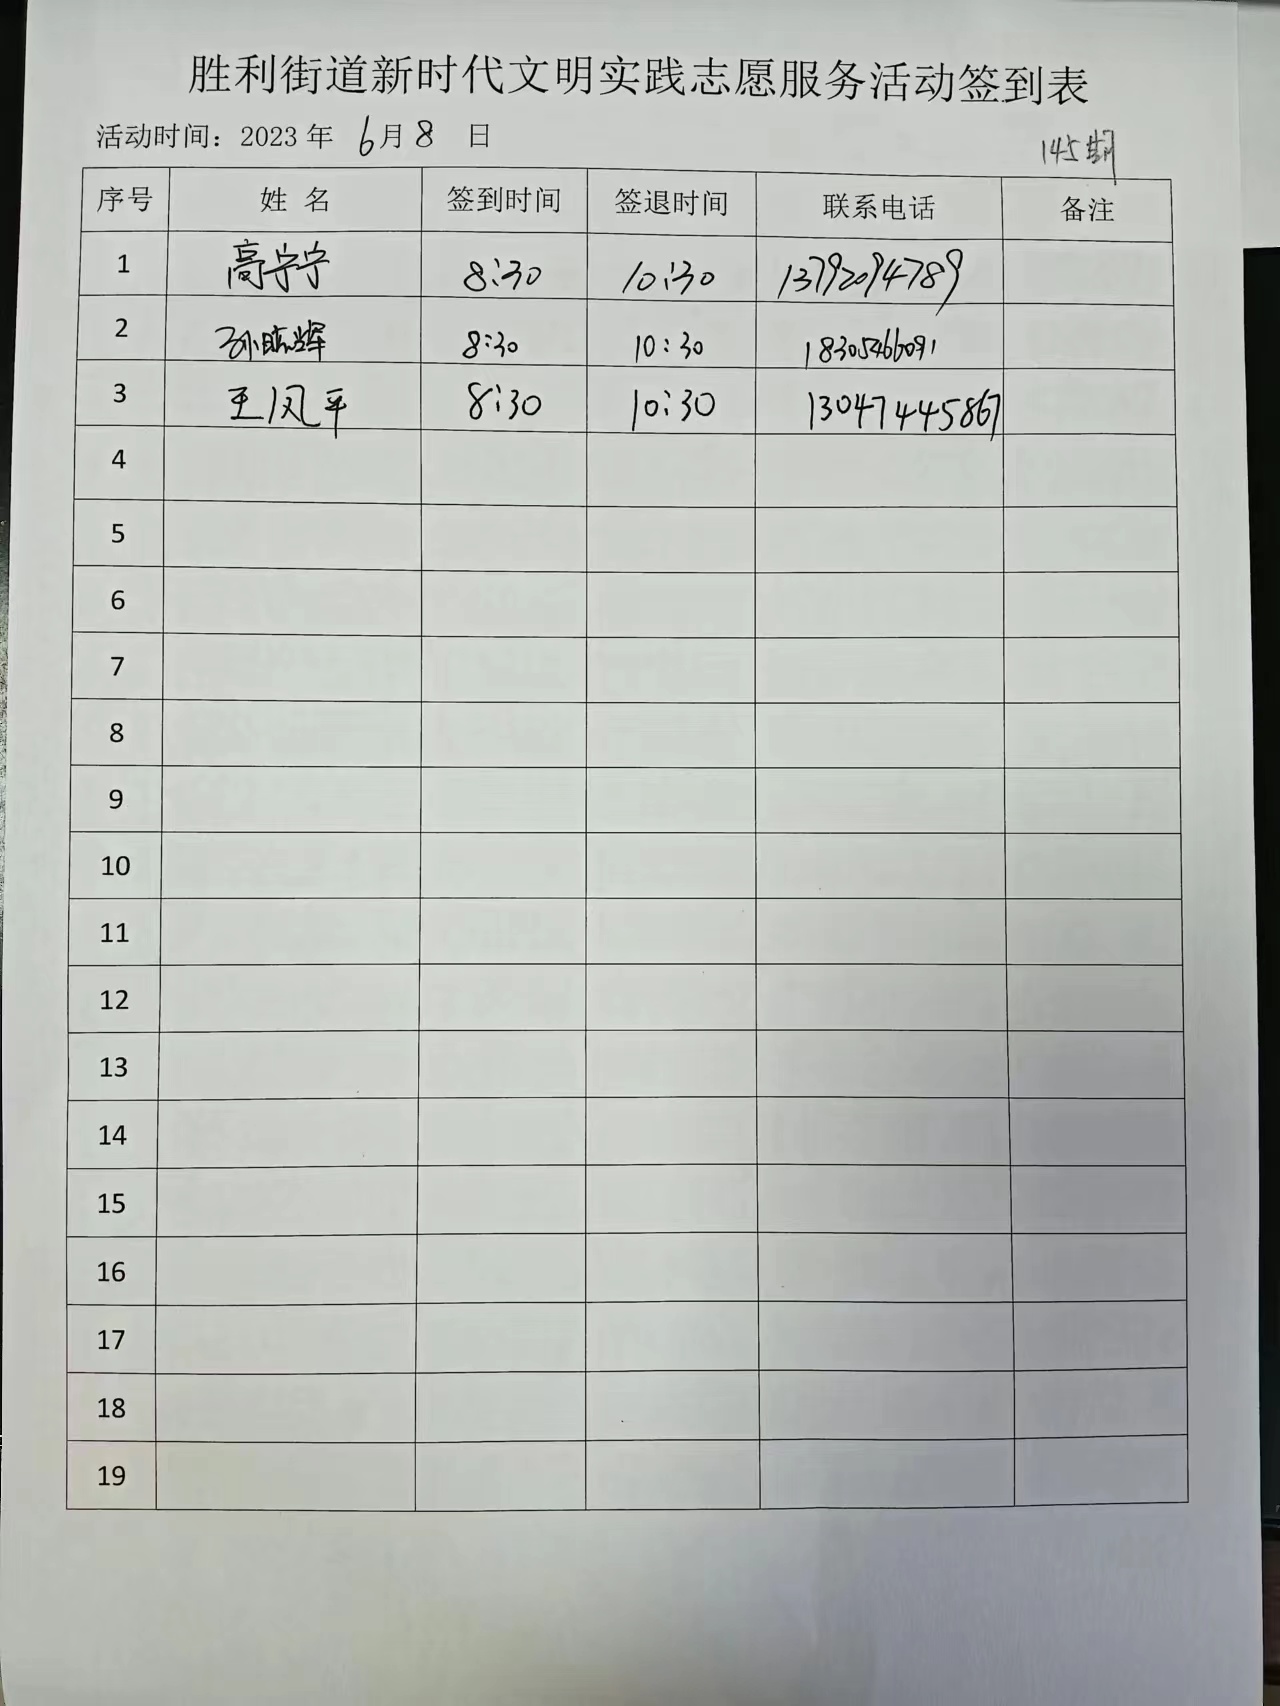 胜利街道新时代文明实践志愿服务活动签到表
活动时间：2023 年 6月 8 日
145期
序号 姓 名 签到时间 签退时间 联系电话 备注
1 高宁宁 8:30 10:30 13792094789
2 8:30 10:30 18305466091
3 王凤平 8:30 10:30 13047445867
4
5
6
7
8
9
10
11
12
13
14
15
16
17
18
19